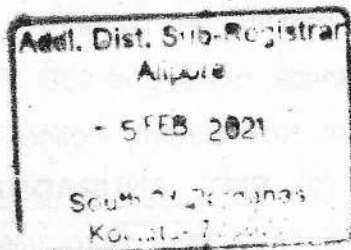 Addl. Dist. Sub-Registrar
Alipore
- 5 FEB 2021
South 24 Parganas